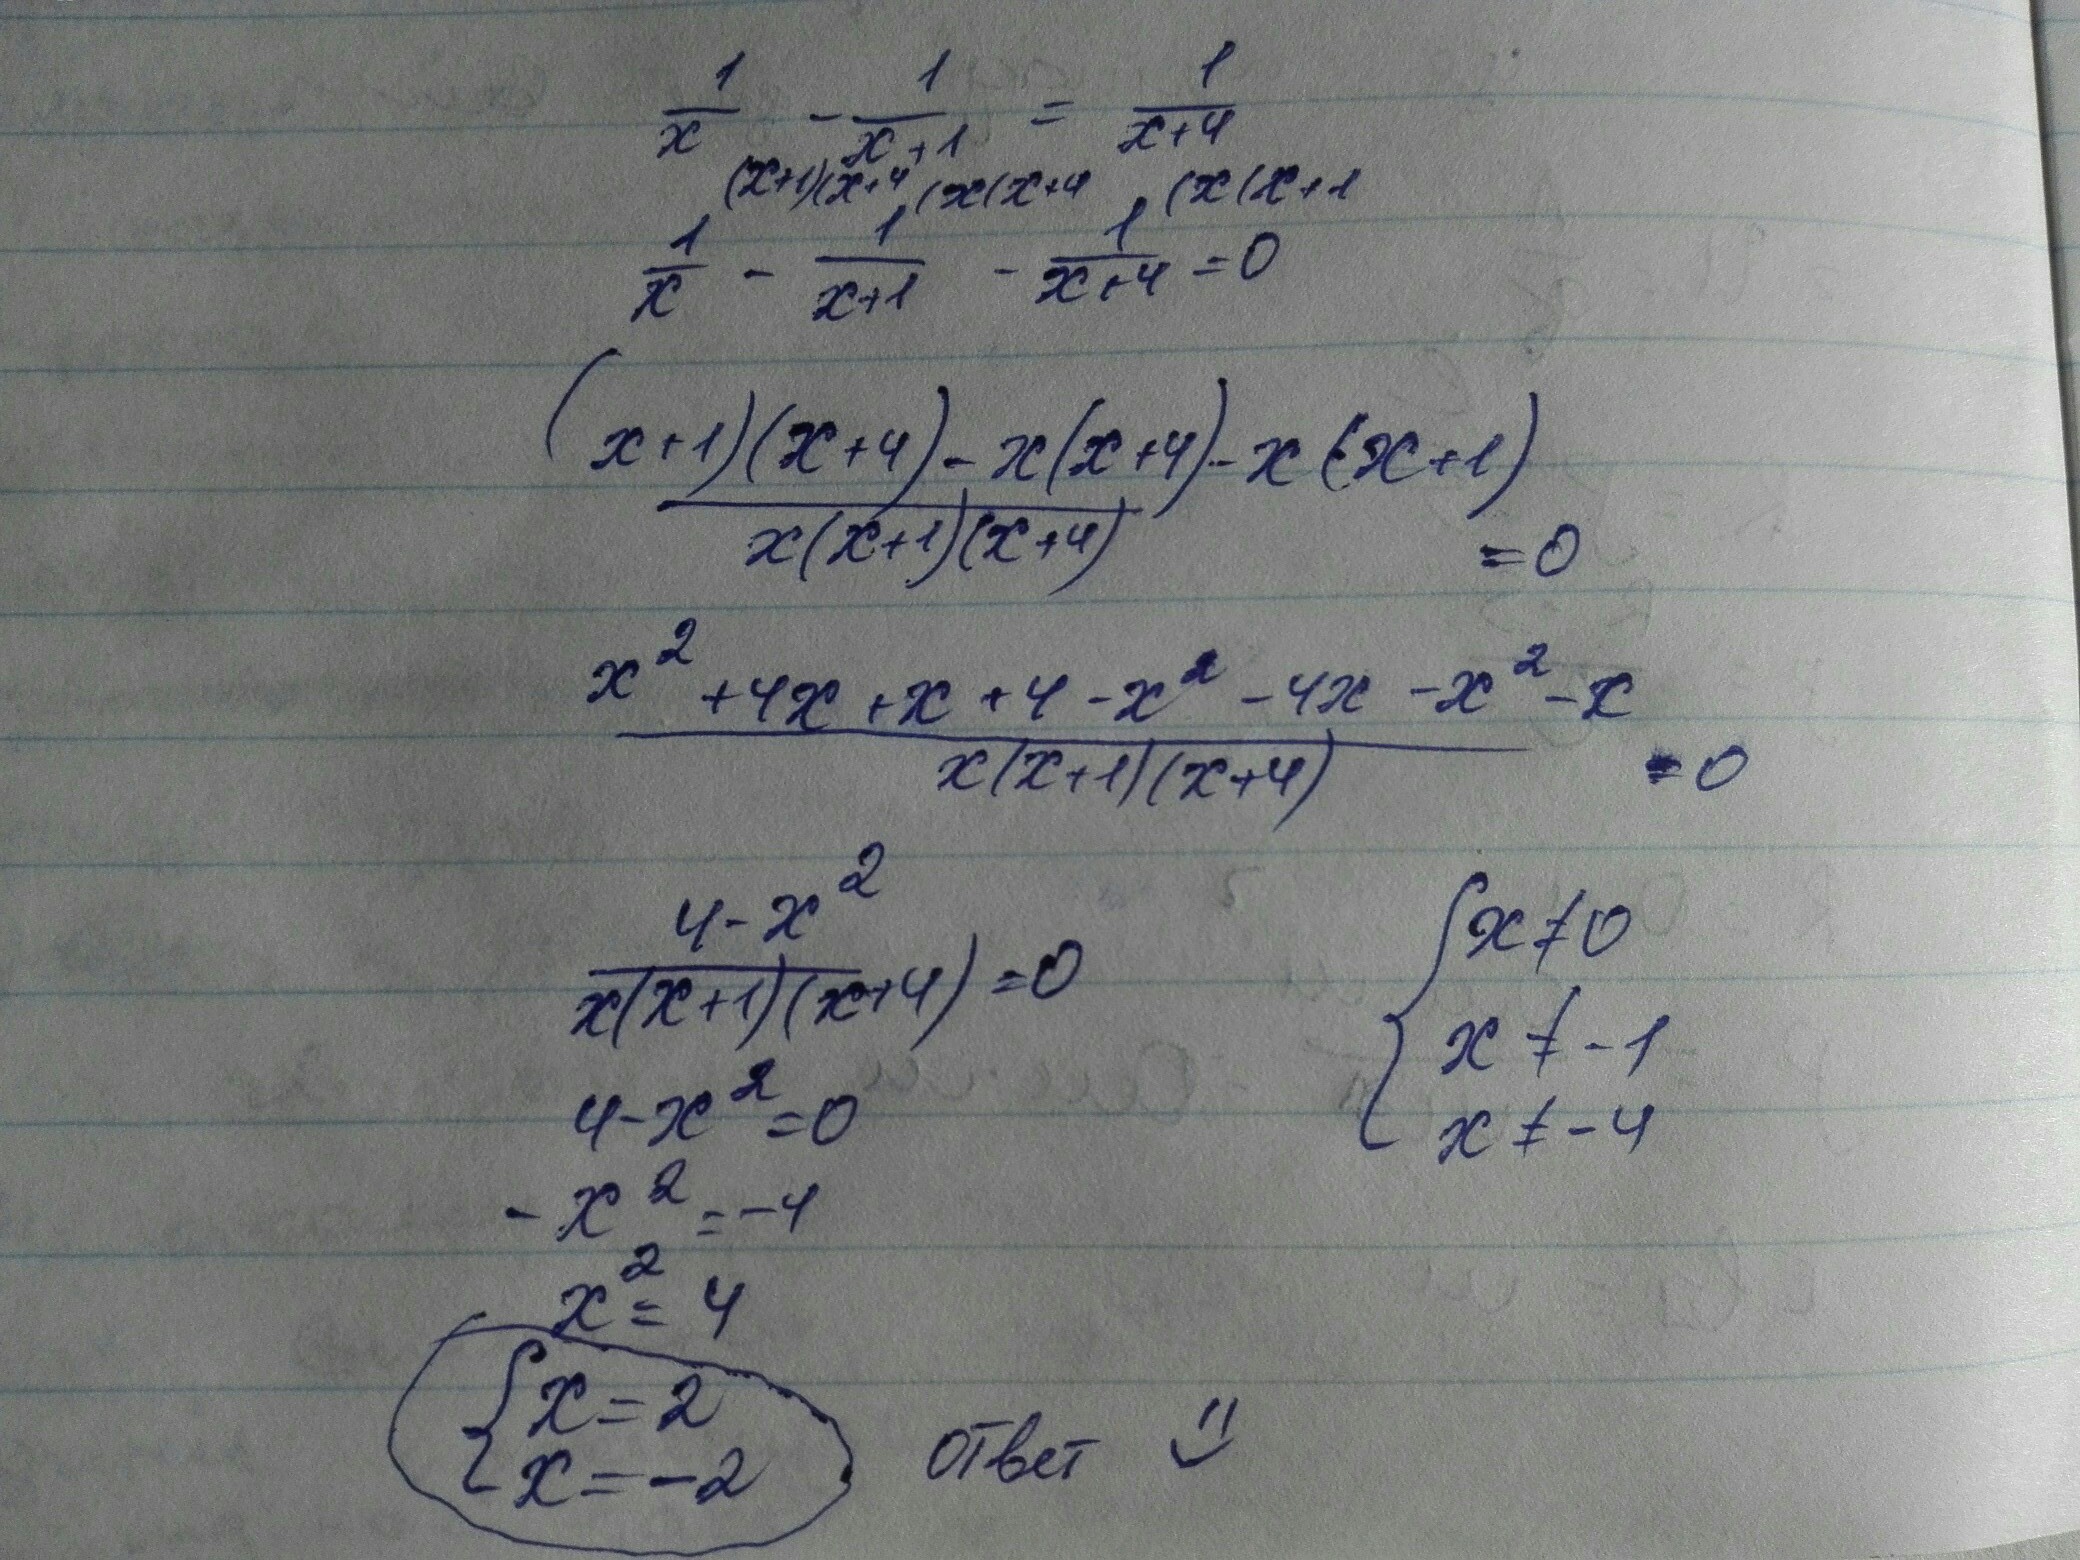 1/x - 1/(x+1) = 1/(x+4)
(x+1)(x+4 (x(x+4 (x(x+1
1/x - 1/(x+1) - 1/(x+4) = 0
(x+1)(x+4) - x(x+4) - x(x+1)
x(x+1)(x+4) = 0
x² + 4x + x + 4 - x² - 4x - x² - x
x(x+1)(x+4) = 0
4 - x²
x(x+1)(x+4) = 0
{ x ≠ 0
x ≠ -1
x ≠ -4
4 - x² = 0
- x² = -4
x² = 4
{ x = 2
x = -2
ответ